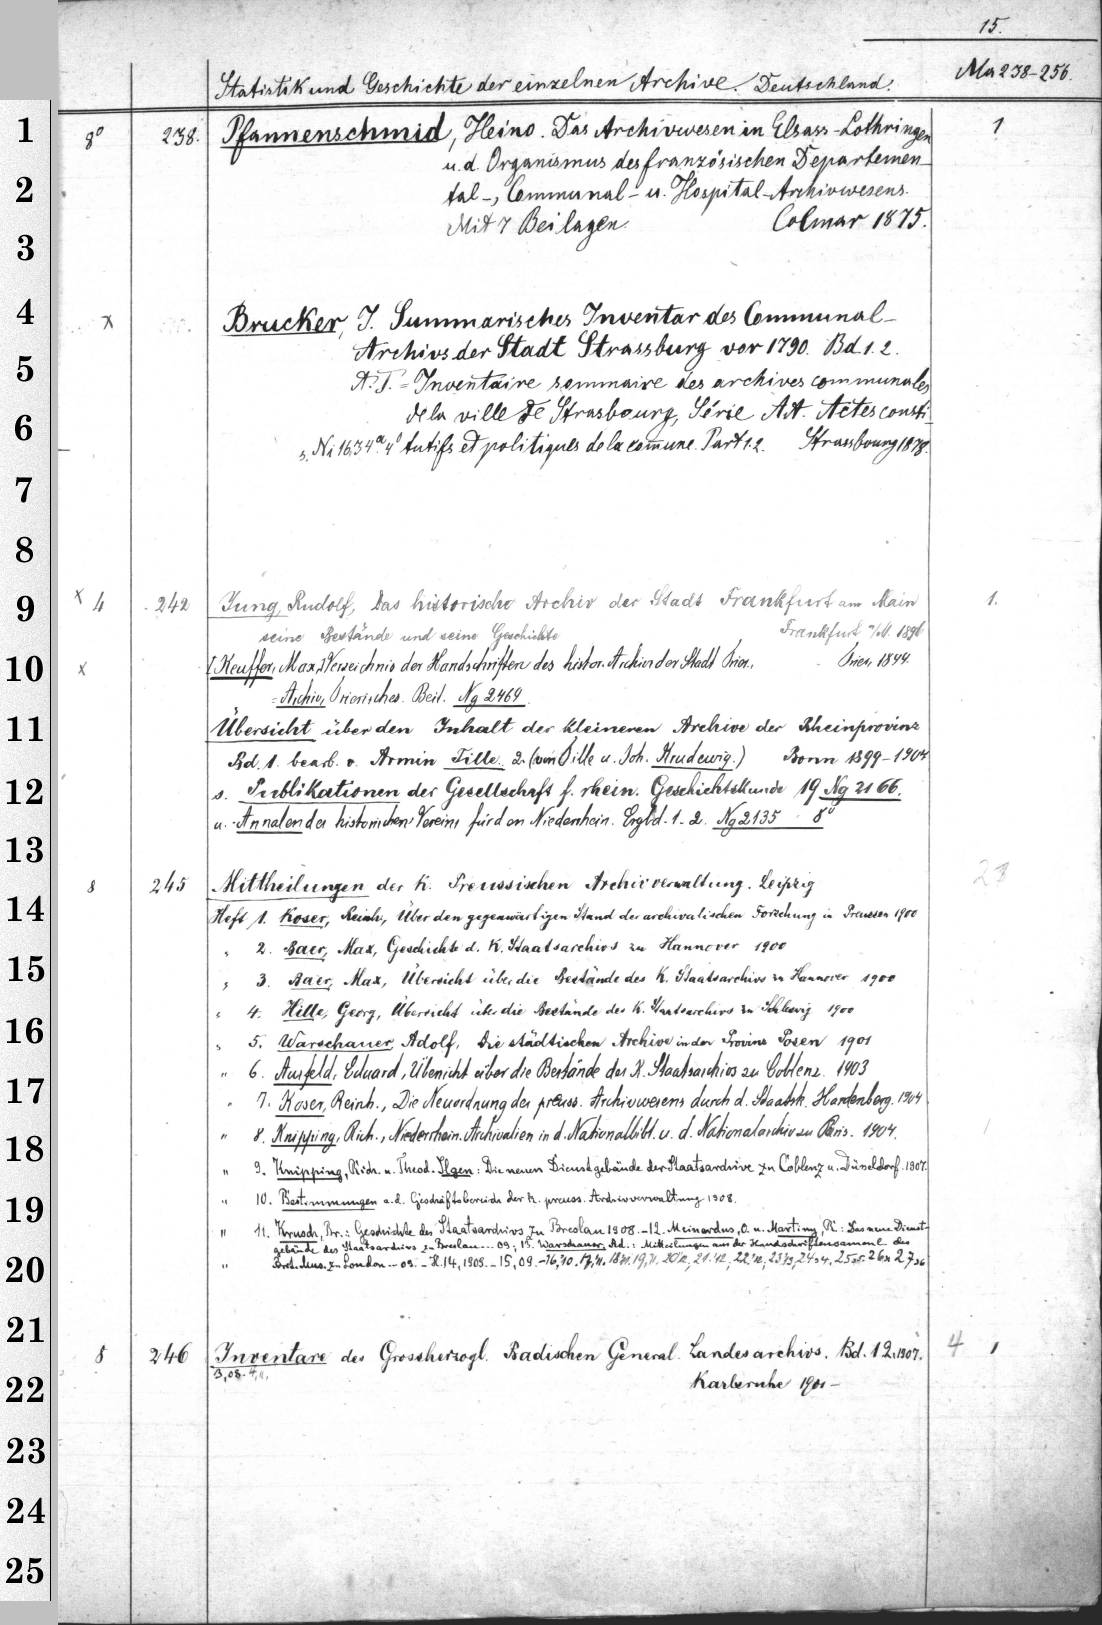 15.
Statistik und Geschichte der einzelnen Archive. Deutschland. Ma 238-256.
1 8° 238. Pfannenschmid, Heino. Das Archivwesen in Elsass-Lothringen 1
u. d. Organismus des französischen Departemen-
2 tal-, Communal- u. Hospital-Archivwesens.
3 Mit 7 Beilagen. Colmar 1875.
4 x Brucker, J. Summarisches Inventar des Communal-
5 Archivs der Stadt Strassburg vor 1790. Bd. 1. 2.
A. T. = Inventaire sommaire des archives communales
6 de la ville de Strasbourg, Série AA. Actes consti-
s. Ni 1634ª 4° tutifs et politiques de la commune. Part 1.2. Strassbourg 1878.
7
8
9 x 4 242 Jung, Rudolf, Das historische Archiv der Stadt Frankfurt am Main 1.
seine Bestände und seine Geschichte Frankfurt a/M. 1896
10 x [Keuffer, Max,] Verzeichnis der Handschriften des histor. Archivs der Stadt Trier. Trier, 1899.
= Archiv, Trierisches. Beil. Ng 2469.
11 Übersicht über den Inhalt der kleineren Archive der Rheinprovinz
Bd. 1. bearb. v. Armin Tille. 2. (von Tille u. Joh. Krudewig.) Bonn 1899-1904
12 s. Publikationen der Gesellschaft f. rhein. Geschichtskunde 19 Ng 2166.
u. Annalen des historischen Vereins für den Niederrhein. Ergbd. 1-2. Ng 2135 8°
13
8 245 Mittheilungen der K. Preussischen Archivverwaltung. Leipzig 23
14 Heft 1. Koser, Reinh., Über den gegenwärtigen Stand der archivalischen Forschung in Preussen 1900
" 2. Baer, Max, Geschichte d. K. Staatsarchivs zu Hannover 1900
15 " 3. Baer, Max, Übersicht über die Bestände des K. Staatsarchivs zu Hannover 1900
" 4. Hille, Georg, Übersicht über die Bestände des K. Staatsarchivs zu Schleswig 1900
16 " 5. Warschauer, Adolf, Die städtischen Archive in der Provinz Posen 1901
" 6. Ausfeld, Eduard, Übersicht über die Bestände des K. Staatsarchivs zu Coblenz. 1903
17 " 7. Koser, Reinh., Die Neuordnung des preuss. Archivwesens durch d. Staatsk. Hardenberg. 1904
18 " 8. Knipping, Rich., Niederrhein. Archivalien in d. Nationalbibl. u. d. Nationalarchiv zu Paris. 1904.
" 9. Knipping, Rich. u. Theod. Ilgen: Die neuen Dienstgebäude der Staatsarchive zu Coblenz u. Düsseldorf. 1907.
19 " 10. Bestimmungen a. d. Geschäftsbereich der K. preuss. Archivverwaltung 1908.
" 11. Krusch, Br.: Geschichte des Staatsarchivs zu Breslau 1908. - 12. Meinardus, O. u. Martiny, R.: Das neue Dienst-
gebäude des Staatsarchivs zu Breslau... 09; 13. Warschauer, Ad.: Mitteilungen aus der Handschriftensamml. des
20 " Brit. Mus. zu London... 09. - H. 14, 1905. - 15, 09.
21
8 246 Inventare des Grossherzogl. Badischen General-Landesarchivs. Bd. 1 2, 1907. 4 1
22 3, 08. 4, 11. Karlsruhe 1901-
23
24
25